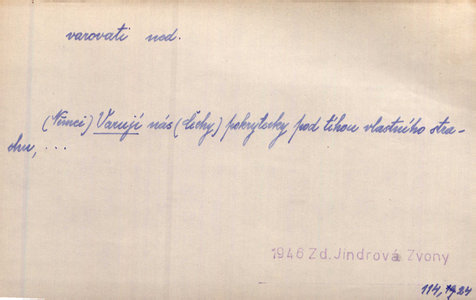 varovati ned.
(Němci) Varují nás (Čechy) pokrytecky pod tíhou vlastního stra-
chu, ...
1946 Zd. Jindrová Zvony
114, 1924